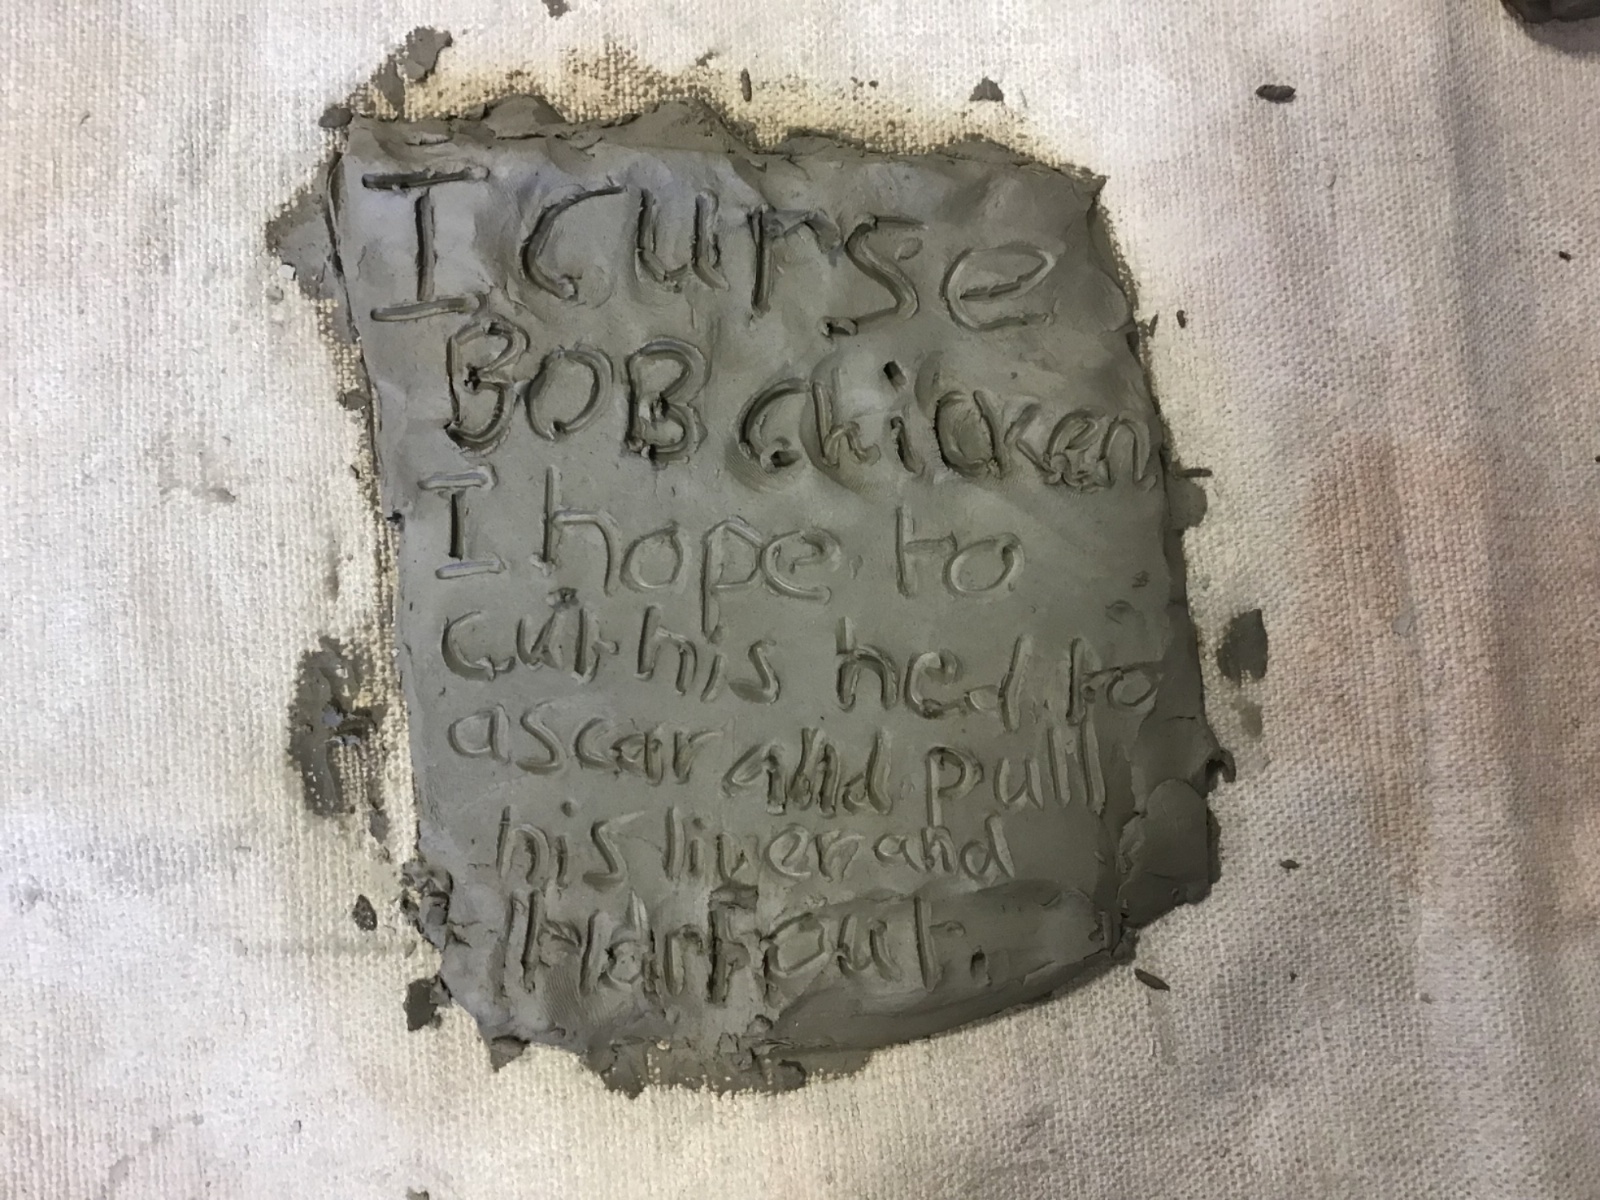 I curse
BOB chicken
I hope to
cut his hed to
a scar and pull
his liver and
hart out.